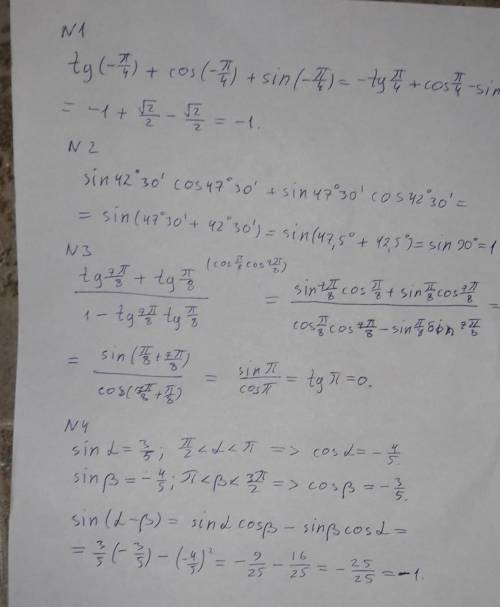 N1
tg(-π/4) + cos(-π/4) + sin(-π/4) = -tg π/4 + cos π/4 - sin
= -1 + √2/2 - √2/2 = -1.
N2
sin 42°30' cos 47°30' + sin 47°30' cos 42°30' =
= sin(47°30' + 42°30') = sin(47,5° + 42,5°) = sin 90° = 1
N3
(tg 7π/8 + tg π/8)/(1 - tg 7π/8 tg π/8) (cos π/8 cos 7π/8) = (sin 7π/8 cos π/8 + sin π/8 cos 7π/8)/(cos π/8 cos 7π/8 - sin π/8 sin 7π/8) =
= sin(π/8 + 7π/8)/cos(7π/8 + π/8) = sin π/cos π = tg π = 0.
N4
sin α = 3/5; π/2 < α < π => cos α = -4/5.
sin β = -4/5; π < β < 3π/2 => cos β = -3/5.
sin(α-β) = sin α cos β - sin β cos α =
= 3/5(-3/5) - (-4/5)² = -9/25 - 16/25 = -25/25 = -1.